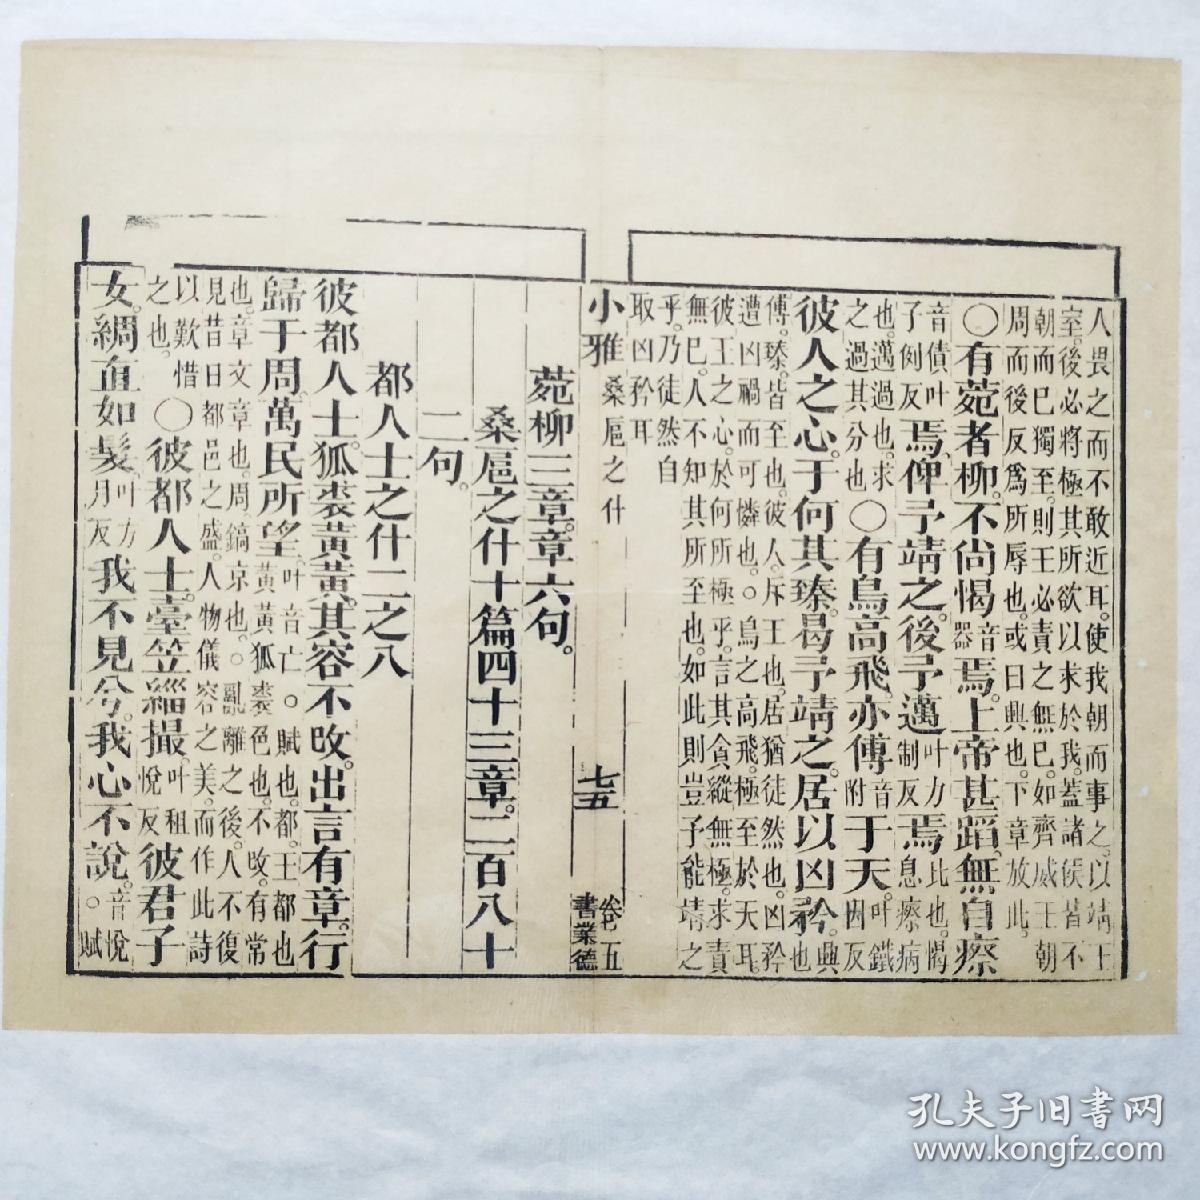 人畏之而不敢近耳。使我朝而事之。以靖王
室。後必將極其所欲以求於我。蓋諸侯皆不
朝而已獨至。則王必責之無已。如齊威王朝
周而後反爲所辱也。或曰興也。下章放此。
〇有菀者柳。不尚愒音器焉。上帝甚蹈。無自瘵
音債叶子例反焉。俾予靖之。後予邁叶力制反焉。比也。愒息瘵病
也。邁過也。求之過其分也〇有鳥高飛。亦傅音附于天。叶鐵因反
彼人之心。于何其臻。曷予靖之。居以凶矜。興也
傅。臻。皆至也。彼人。斥王也。居猶徒然也。凶矜
遭凶禍而可憐也。〇鳥之高飛。極至於天耳。
彼王之心。於何所極乎。言其貪縱無極。求責
無已。人不知其所至也。如此則豈予能靖之
乎。乃徒然自
取凶矜耳
小雅 桑扈之什 七五 卷五 書業德
菀柳三章。章六句。
桑扈之什十篇四十三章。二百八十
二句。
都人士之什二之八
彼都人士。狐裘黃黃。其容不改。出言有章。行
歸于周。萬民所望。叶音亡。〇賦也。都。王都也
黃黃狐裘色也。不改。有常
也。章文章也。周鎬京也。〇亂離之後。人不復
見昔日都邑之盛。人物儀容之美。而作此詩
以歎惜之也。〇彼都人士。臺笠緇撮。叶租悅反彼君子
女。綢直如髮叶方月反我不見兮。我心不說。音悅。賦
孔夫子旧书网
www.kongfz.com